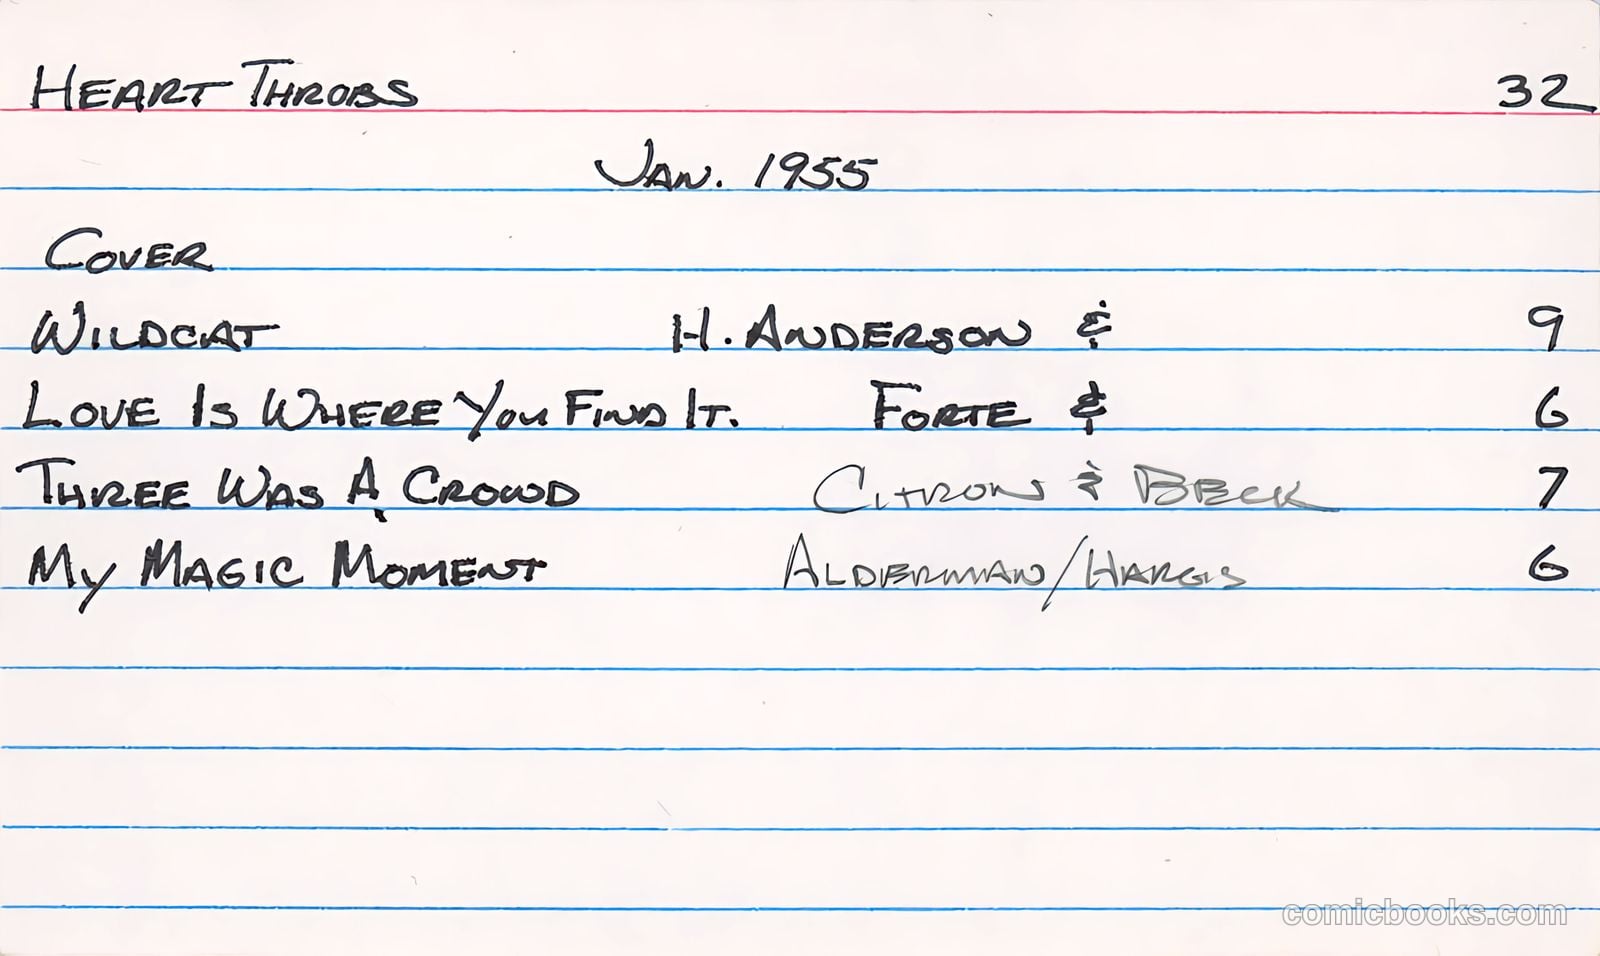 HEART THROBS 32
JAN. 1955
COVER
WILDCAT H. ANDERSON & 9
LOVE IS WHERE YOU FIND IT. FORTE & 6
THREE WAS A CROWD CITRON & BECK 7
MY MAGIC MOMENT ALDERMAN/HARGIS 6
comicbooks.com